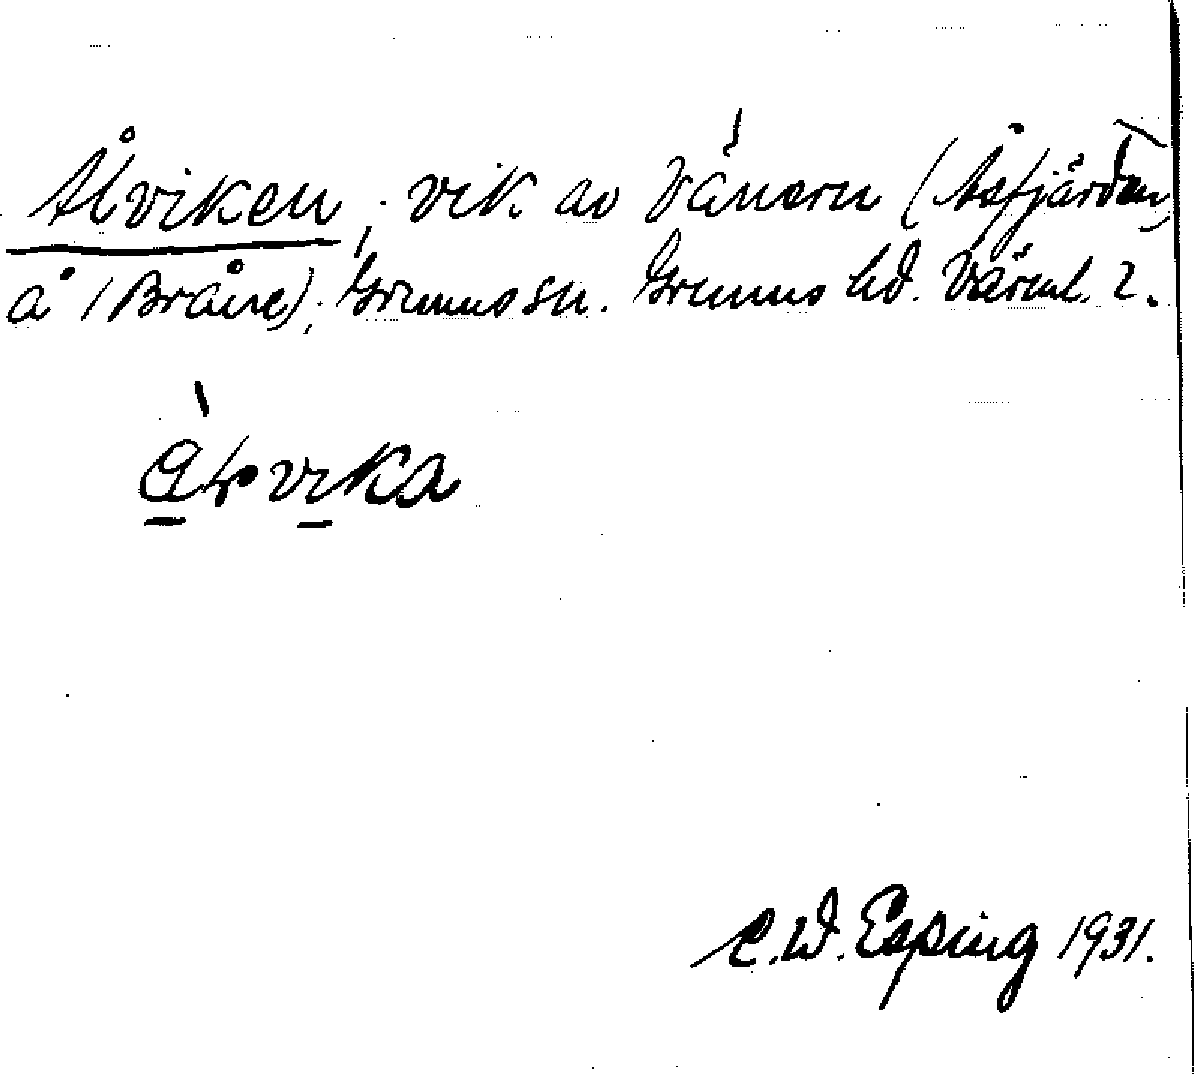 Ålviken, vik av Vänern (Åsfjärden,
å Bråne), Grums sn. Grums hd. Värml. l.
C. W. Esping 1931.